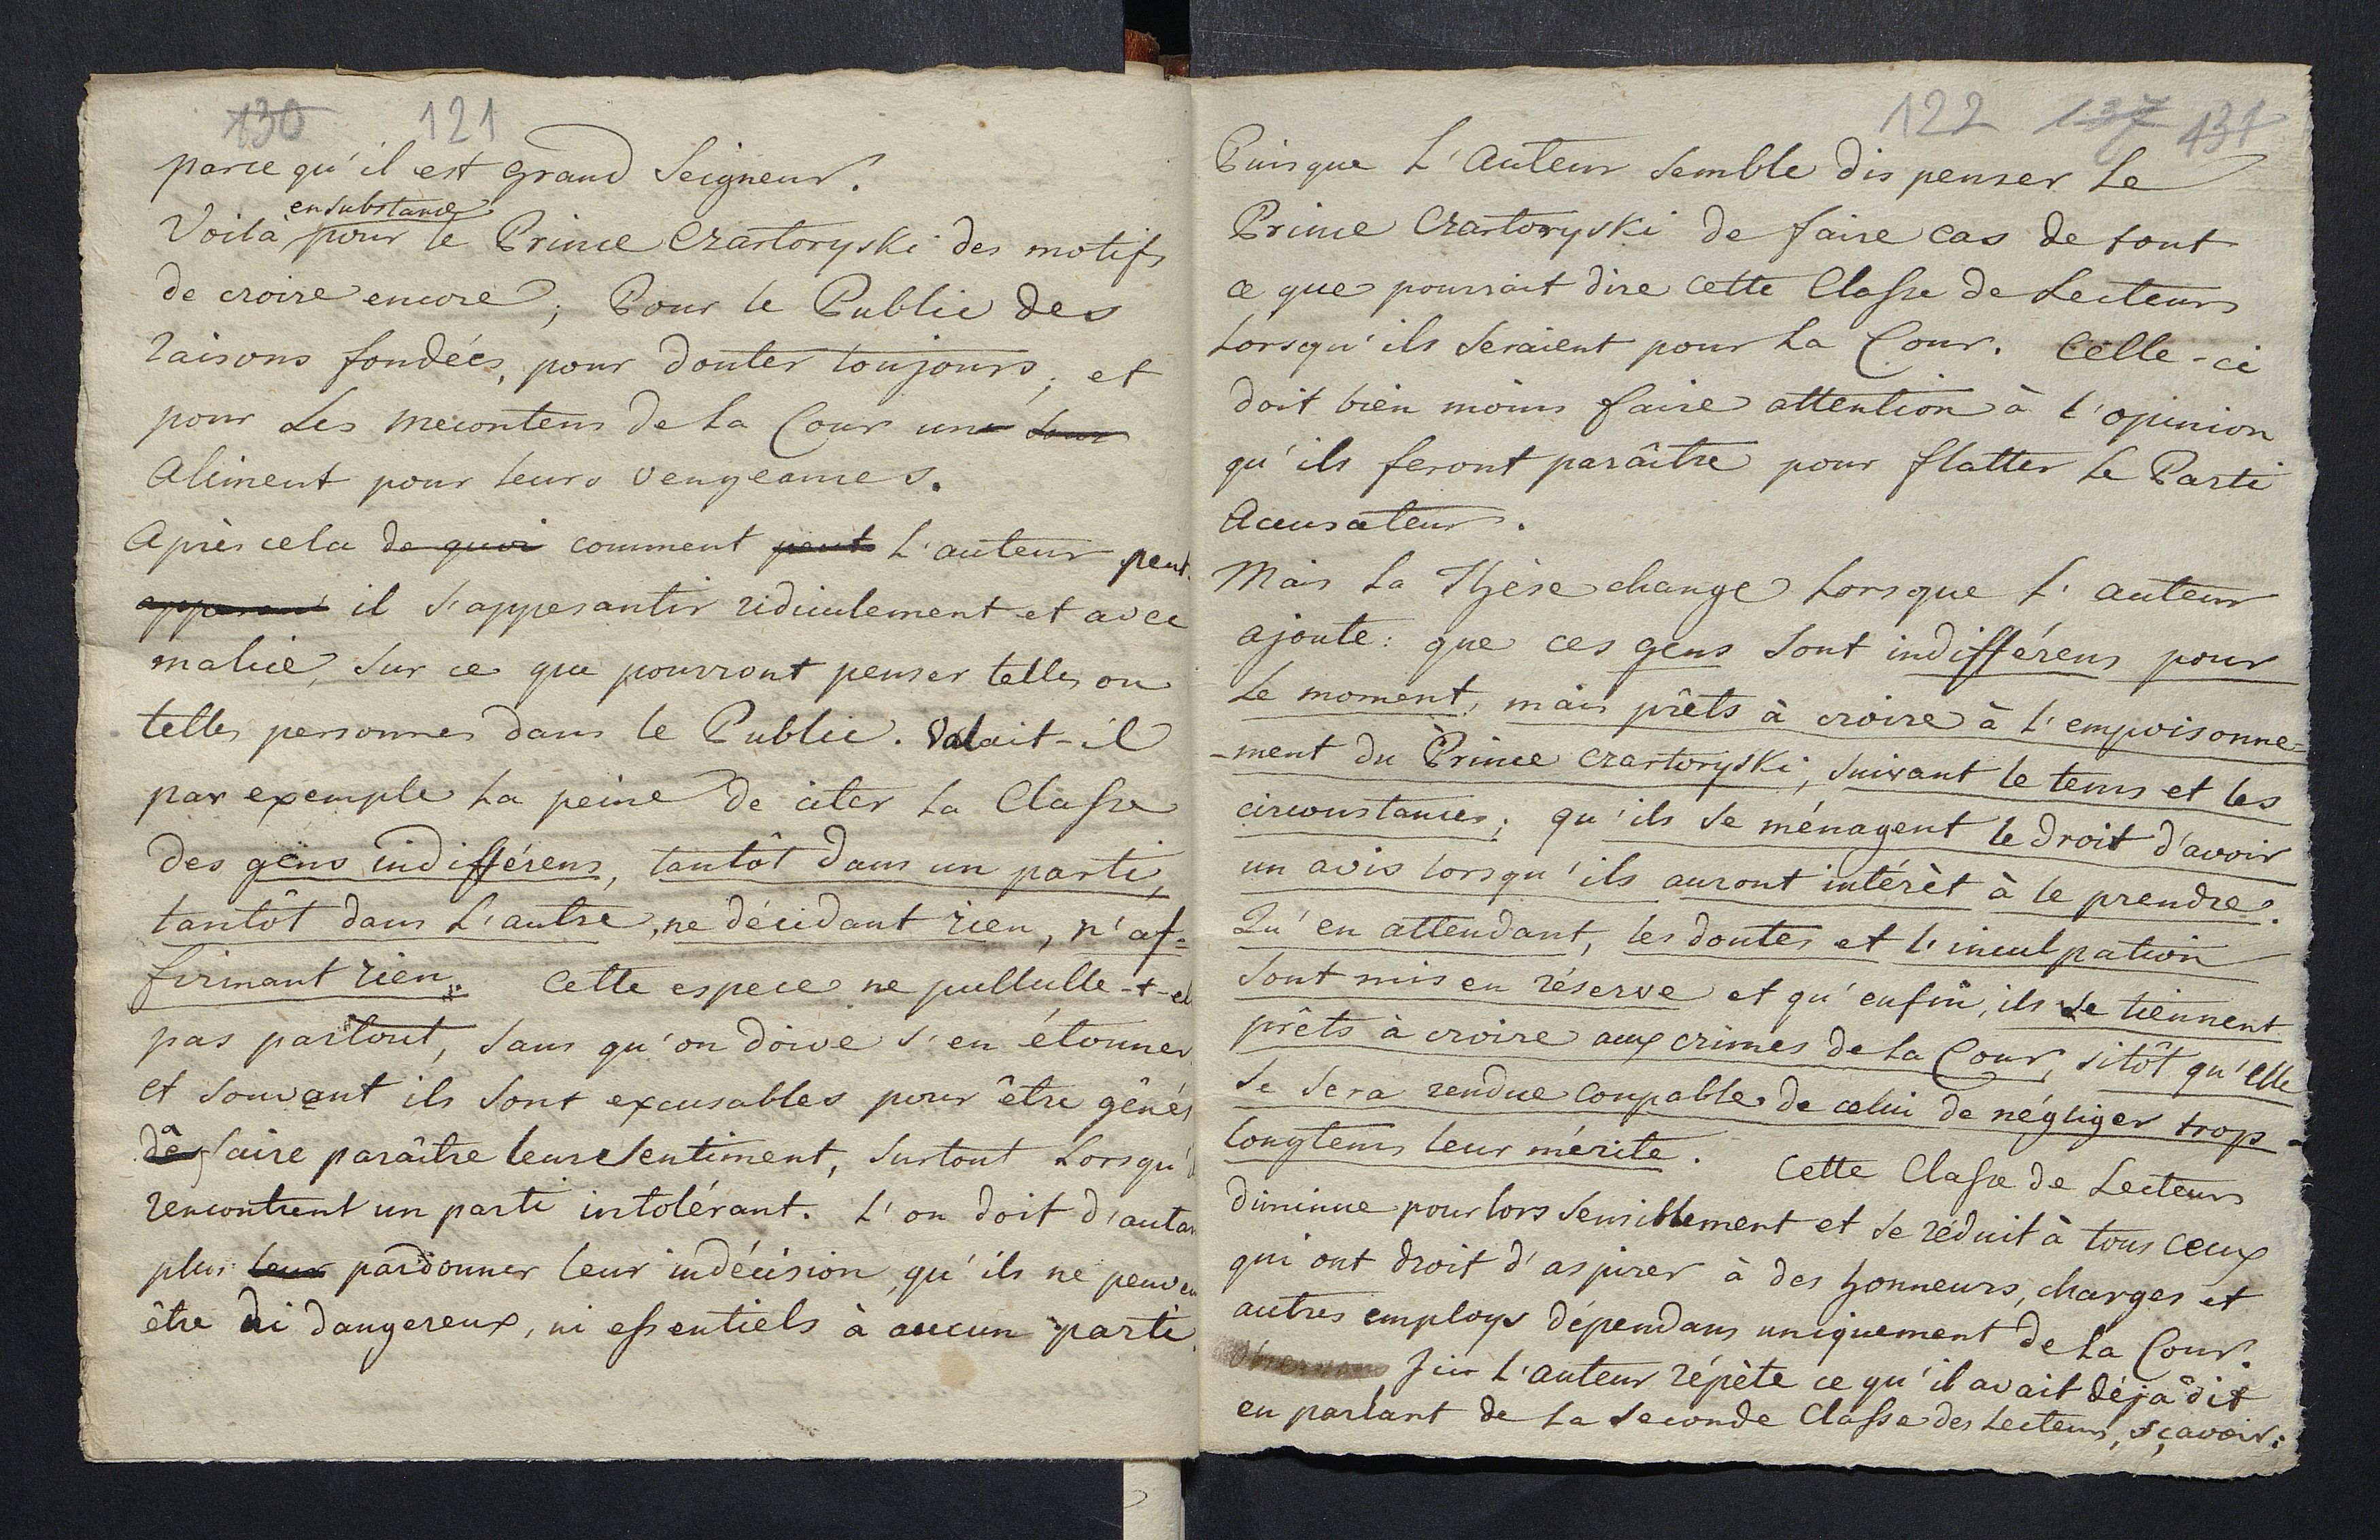 130 121
parce qu'il est grand Seigneur.
en substance
Voilà pour le Prince Czartoryski des motifs
de croire encore; Pour le Public des
raisons fondées, pour douter toujours; et
pour Les mécontens de La Cour une
Aliment pour leurs vengeances.
Après cela de quoi comment peut L'auteur peut-
il s'appesantir ridiculement et avec
malice, sur ce que pourront penser telles ou
telles personnes dans le Public. Valait-il
par exemple La peine de citer La Classe
des gens indifférens, tantôt dans un parti,
tantôt dans L'autre, ne décidant rien, n'af-
firmant rien. Cette espece ne pullulle-t-el
pas partout, sans qu'on doive s'en étonner
et souvant ils sont excusables pour être gênés
à faire paraître leur Sentiment, surtout Lorsqu'
rencontrent un parti intolérant. L'on doit d'autan
plus leur pardonner leur indécision, qu'ils ne peuven
être ni dangereux, ni essentiels à aucun parti.
122 137 131
Puisque L'Auteur semble dispenser Le
Prince Czartoryski de faire cas de tout
ce que pourrait dire cette Classe de Lecteurs
Lorsqu'ils seraient pour La Cour. Celle-ci
doit bien moins faire attention à L'opinion
qu'ils feront paraître pour flatter Le Parti
Accusateur.
Mais La Thèse change Lorsque L'auteur
ajoute: que ces gens sont indifférens pour
Le moment, mais prêts à croire à L'empoisonne-
-ment du Prince Czartoryski, suivant le tems et les
circonstances; qu'ils se ménagent le droit d'avoir
un avis lorsqu'ils auront intérêt à le prendre.
Qu'en attendant, les doutes et l'inculpation
sont mis en réserve et qu'enfin, ils se tiennent
prêts à croire aux crimes de La Cour, sitôt qu'elle
se sera rendue coupable de celui de négliger trop-
longtems leur mérite. Cette Classe de Lecteurs
diminue pour lors sensiblement et se réduit à tous ceux
qui ont droit d'aspirer à des honneurs, charges et
autres employs dépendans uniquement de La Cour.
Ici L'auteur répète ce qu'il avait déjà dit
en parlant de La Seconde Classe des Lecteurs, sçavoir: